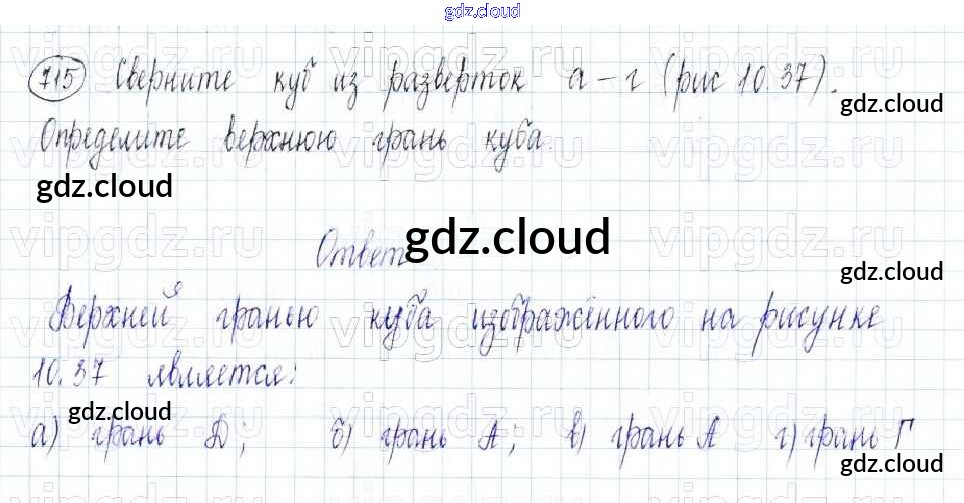 gdz.cloud
715 Сверните куб из разверток а – г (рис 10.37).
gdz.cloud
Определите верхнюю грань куба.
gdz.cloud
Ответ
gdz.cloud
gdz.cloud
Верхней гранью куба изображённого на рисунке
10.37 является:
gdz.cloud
а) грань Д; б) грань А; в) грань А г) грань Г
gdz.cloud
vipgdz.ru